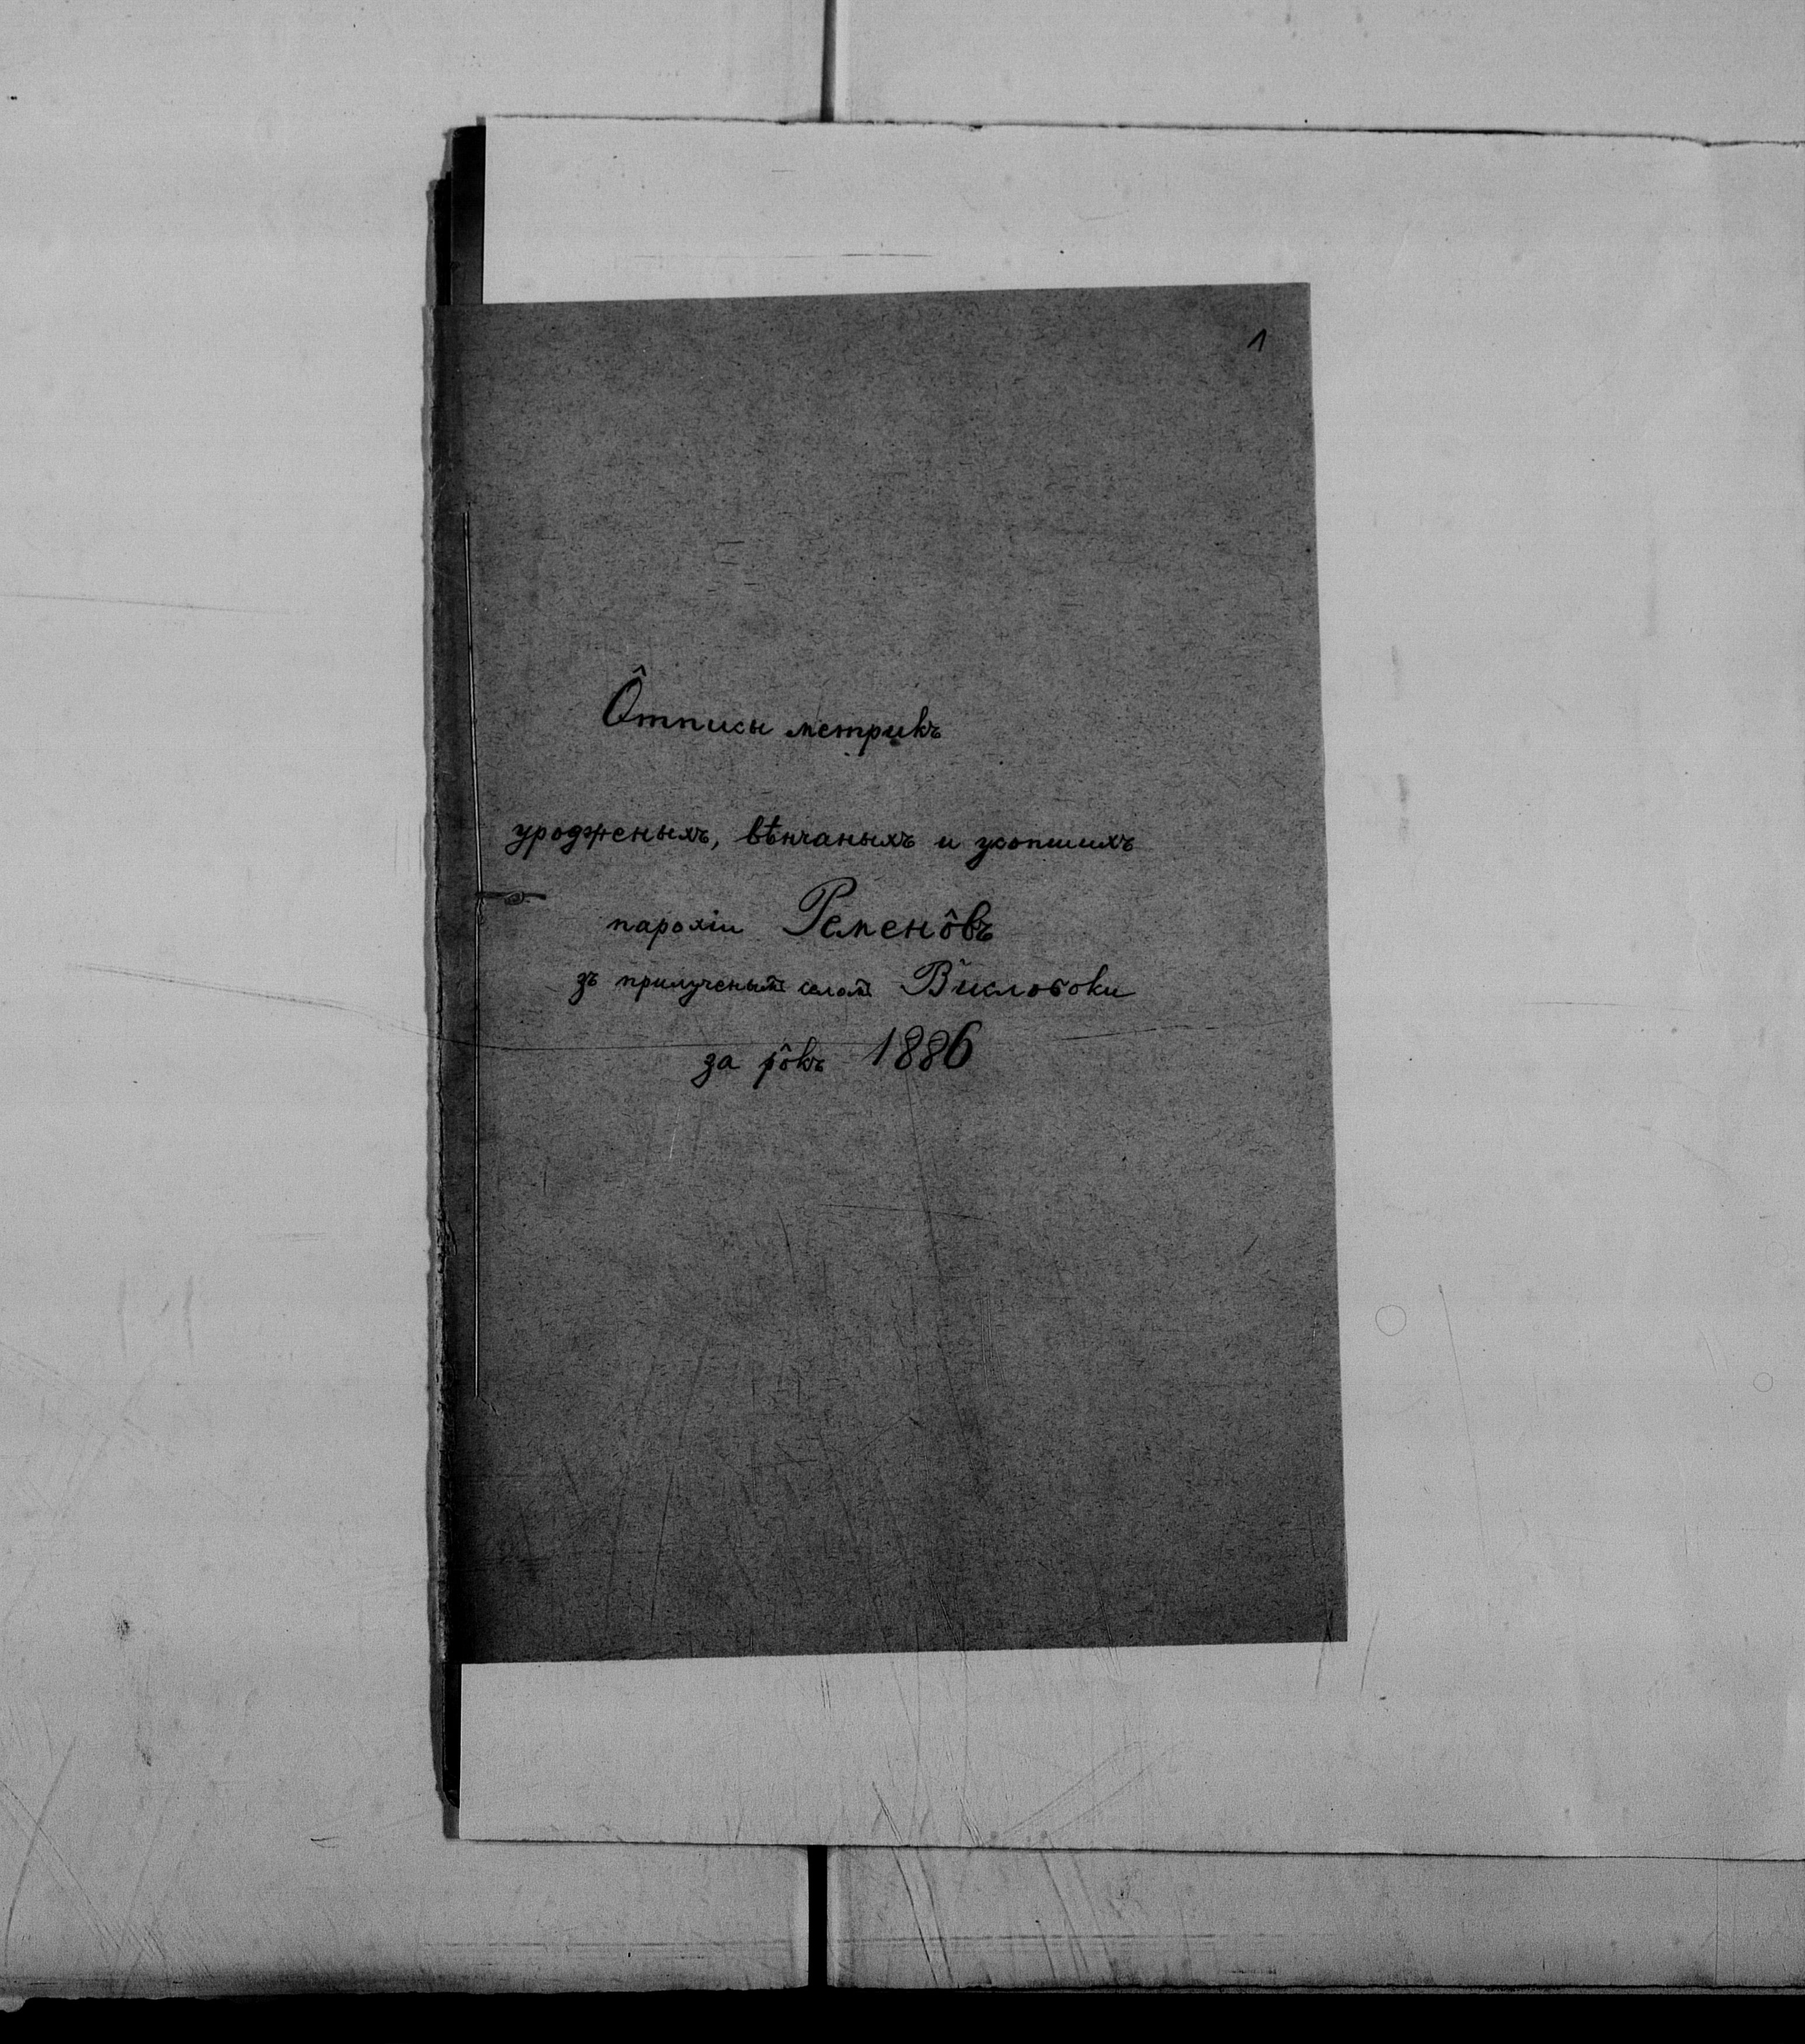 1
Ôтписы метрикъ
уродженыхъ, вѣнчаныхъ и усопшихъ
парохіи Ременôвъ
зъ прилученымъ селомъ Вислобоки
за рôкъ 1886